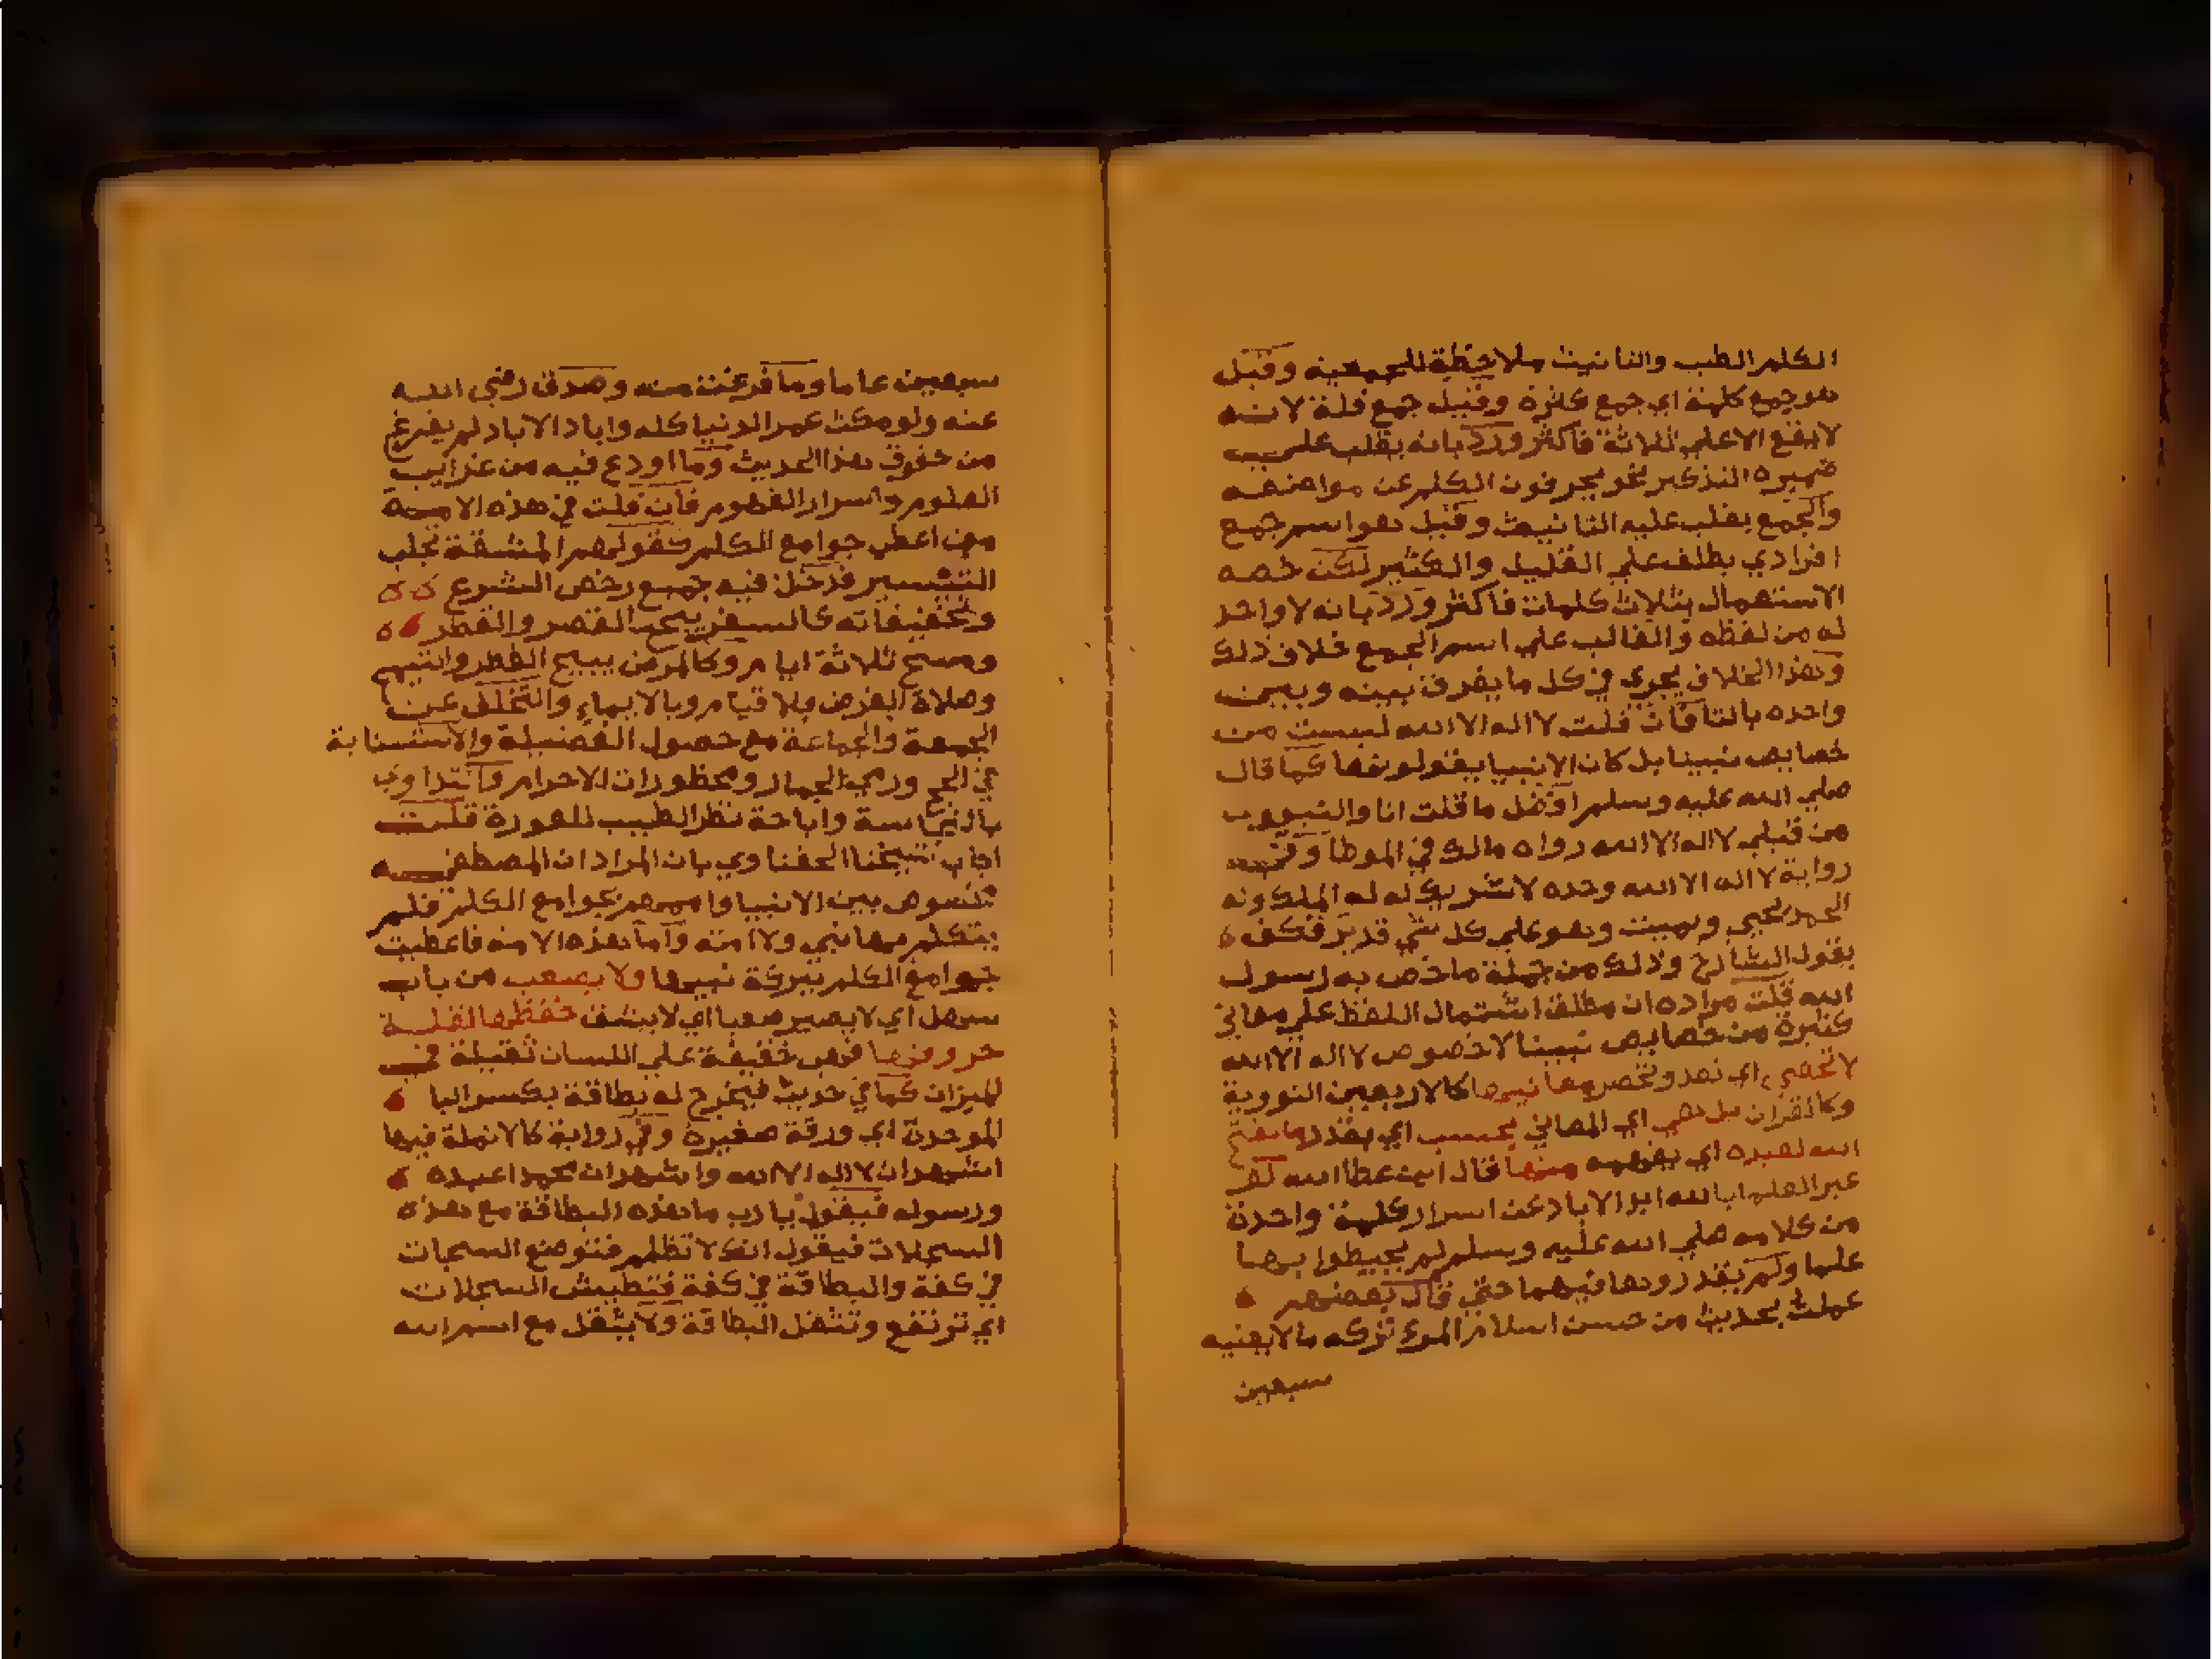 الكلم الطيب والتانيث ملاحظة للجمعية وقيل
هو جمع كلمة اي جمع كثرة وقيل جمع قلة لانه
لايقع الاعلي ثلاثة فاكثر ورد بانه يغلب علي
ضميره التذكير نحو يحرفون الكلم عن مواضعه
والجمع يغلب عليه التانيث وقيل هو اسم جمع
افرادي يطلق علي القليل والكثير لكن خصه
الاستعمال بثلاث كلمات فاكثر ورد بانه لاواحد
له من لفظه والغالب علي اسم الجمع خلاف ذلك
وهذا الخلاف يجري في كل مايفرق بينه وبين
واحده بالتا فان قلت لااله الاالله ليست من
خصايص نبينا بل كان الانبيا يقولونها كما قال
صلي الله عليه وسلم افضل ما قلت انا والنبيون
من قبلي لااله الاالله رواه مالك في الموطا وفي
رواية لااله الاالله وحده لاشريك له له الملك وله
الحمد يحيي ويميت وهو علي كل شي قدير فكيف
يقول الشارح وذلك من جملة ماخص به رسول
الله قلت مراده ان مطلق اشتمال اللفظ علي معاني
كثيرة من خصايص نبينا لاخصوص لااله الاالله
لاتحصي اي تعد وتحصر معانيها كالاربعين النووية
وكالقران بل هي اي المعاني بحسب اي بقدر مايفتح
الله لعبده اي يفهمه منها قال ابن عطاالله لو
عبر العلما بالله ابد الاباد عن اسرار كلمة واحدة
من كلامه صلي الله عليه وسلم لم يحيطوا بها
علما ولم يقدروها فيهما حتي قال بعضهم
عملت بحديث من حسن اسلام المرء تركه مالايعنيه
سبعين
سبعين عاما وما فرغت منه وصدق رضي الله
عنه ولو مكث عمر الدنيا كله واباد الاباد لم يفرغ
من حقوق هذا الحديث وما اودع فيه من غرايب
العلوم واسرار الفهوم فان قلت في هذه الامة
من اعطي جوامع الكلم كقولهم المشقة تجلب
التيسير فدخل فيه جميع رخص الشرع
وتخفيفاته كالسفر يبيح القصر والفطر
ومسح ثلاثة ايام وكالمرض يبيح الفطر والتيمم
وصلاة الفرض بلا قيام وبالايماء والتخلف عن
الجمعة والجماعة مع حصول الفضيلة والاستنابة
في الحج ورمي الجمار ومحظورات الاحرام والتداوي
بالنجاسة واباحة نظر الطبيب للعورة قلت
اجاب شيخنا الحفناوي بان المراد ان المصطفي
مخصوص بين الانبيا واممهم بجوامع الكلم فلم
يتكلم بها نبي ولاامته واما هذه الامة فاعطيت
جوامع الكلم ببركة نبيها ولا يصعب من باب
سهل اي لايصير صعبا اي لايشق حفظها لقلة
حروفها فهي خفيفة علي اللسان ثقيلة في
الميزان كما في حديث فيخرج له بطاقة بكسر البا
الموحدة اي ورقة صغيرة وفي رواية كالانملة فيها
اشهد ان لااله الاالله واشهد ان محمدا عبده
ورسوله فيقول يارب ماهذه البطاقة مع هذه
السجلات فيقول انك لاتظلم فتوضع السجلات
في كفة والبطاقة في كفة فتطيش السجلات
اي ترتفع وتثقل البطاقة ولايثقل مع اسم الله